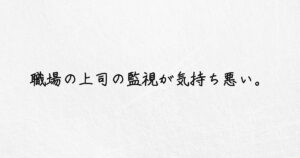 職場の上司の監視が気持ち悪い。